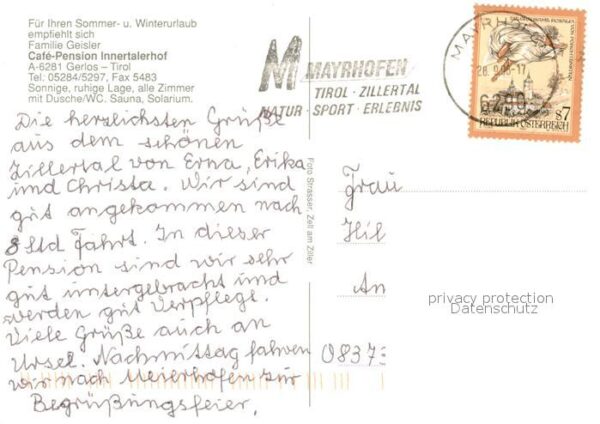 Für Ihren Sommer- u. Winterurlaub
empfiehlt sich
Familie Geisler
Café-Pension Innertalerhof
A-6281 Gerlos – Tirol
Tel. 05284/5297, Fax 5483
Sonnige, ruhige Lage, alle Zimmer
mit Dusche/WC. Sauna, Solarium.
Die herzlichsten Grüße
aus dem schönen
Zillertal von Erna, Erika
und Christa. Wir sind
gut angekommen nach
8 Std Fahrt. In dieser
Pension sind wir sehr
gut untergebracht und
werden gut Verpflege.
Viele Grüße auch an
Ursel. Nachmittag fahren
wir nach Meierhofen zur
Begrüßungsfeier.
Foto Strasser, Zell am Ziller
M MAYRHOFEN
TIROL · ZILLERTAL
NATUR · SPORT · ERLEBNIS
MAYRH
6290
S7
REPUBLIK ÖSTERREICH
Frau
Hil
An
privacy protection
Datenschutz
0837